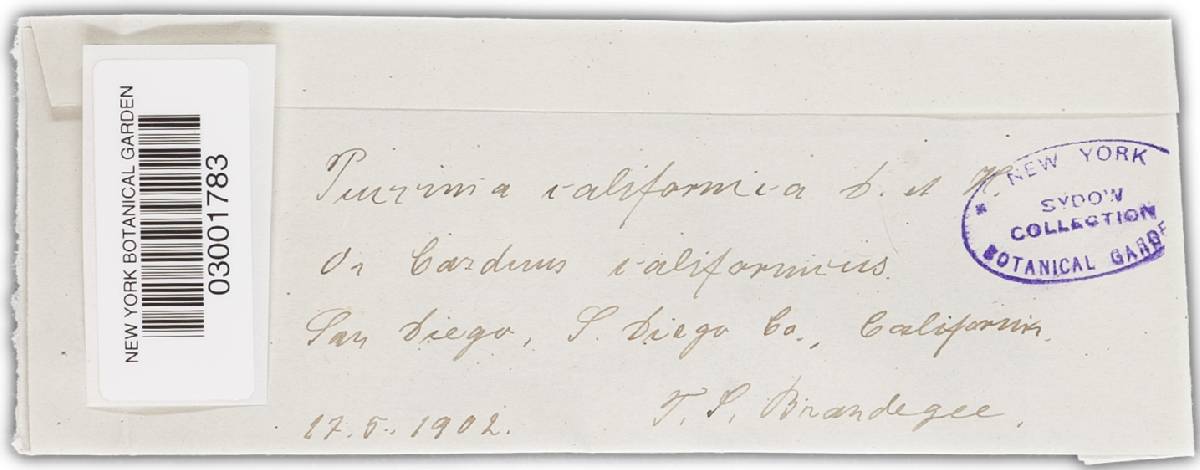 NEW YORK BOTANICAL GARDEN
03001783
Puccinia californica D. et H.
On Carduus californicus.
San Diego, S. Diego Co., California.
17.5.1902.
T. S. Brandegee.
NEW YORK
SYDOW
COLLECTION
BOTANICAL GARDE